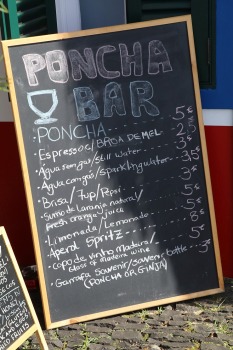 PONCHA
BAR
PONCHA 5€
Espresso/BROA DE MEL 2€
Água s/gás/still water 3€
Água com gás/sparkling water 3,5€
Brisa/7up/Pepsi 3€
Sumo de laranja natural/
fresh orange juice 5€
Limonada/Lemonade 5€
Aperol Spritz 8€
Copo de vinho Madeira/
glass of madeira wine 5€
Garrafa souvenir/souvenir bottle
(PONCHA OR GINJA)